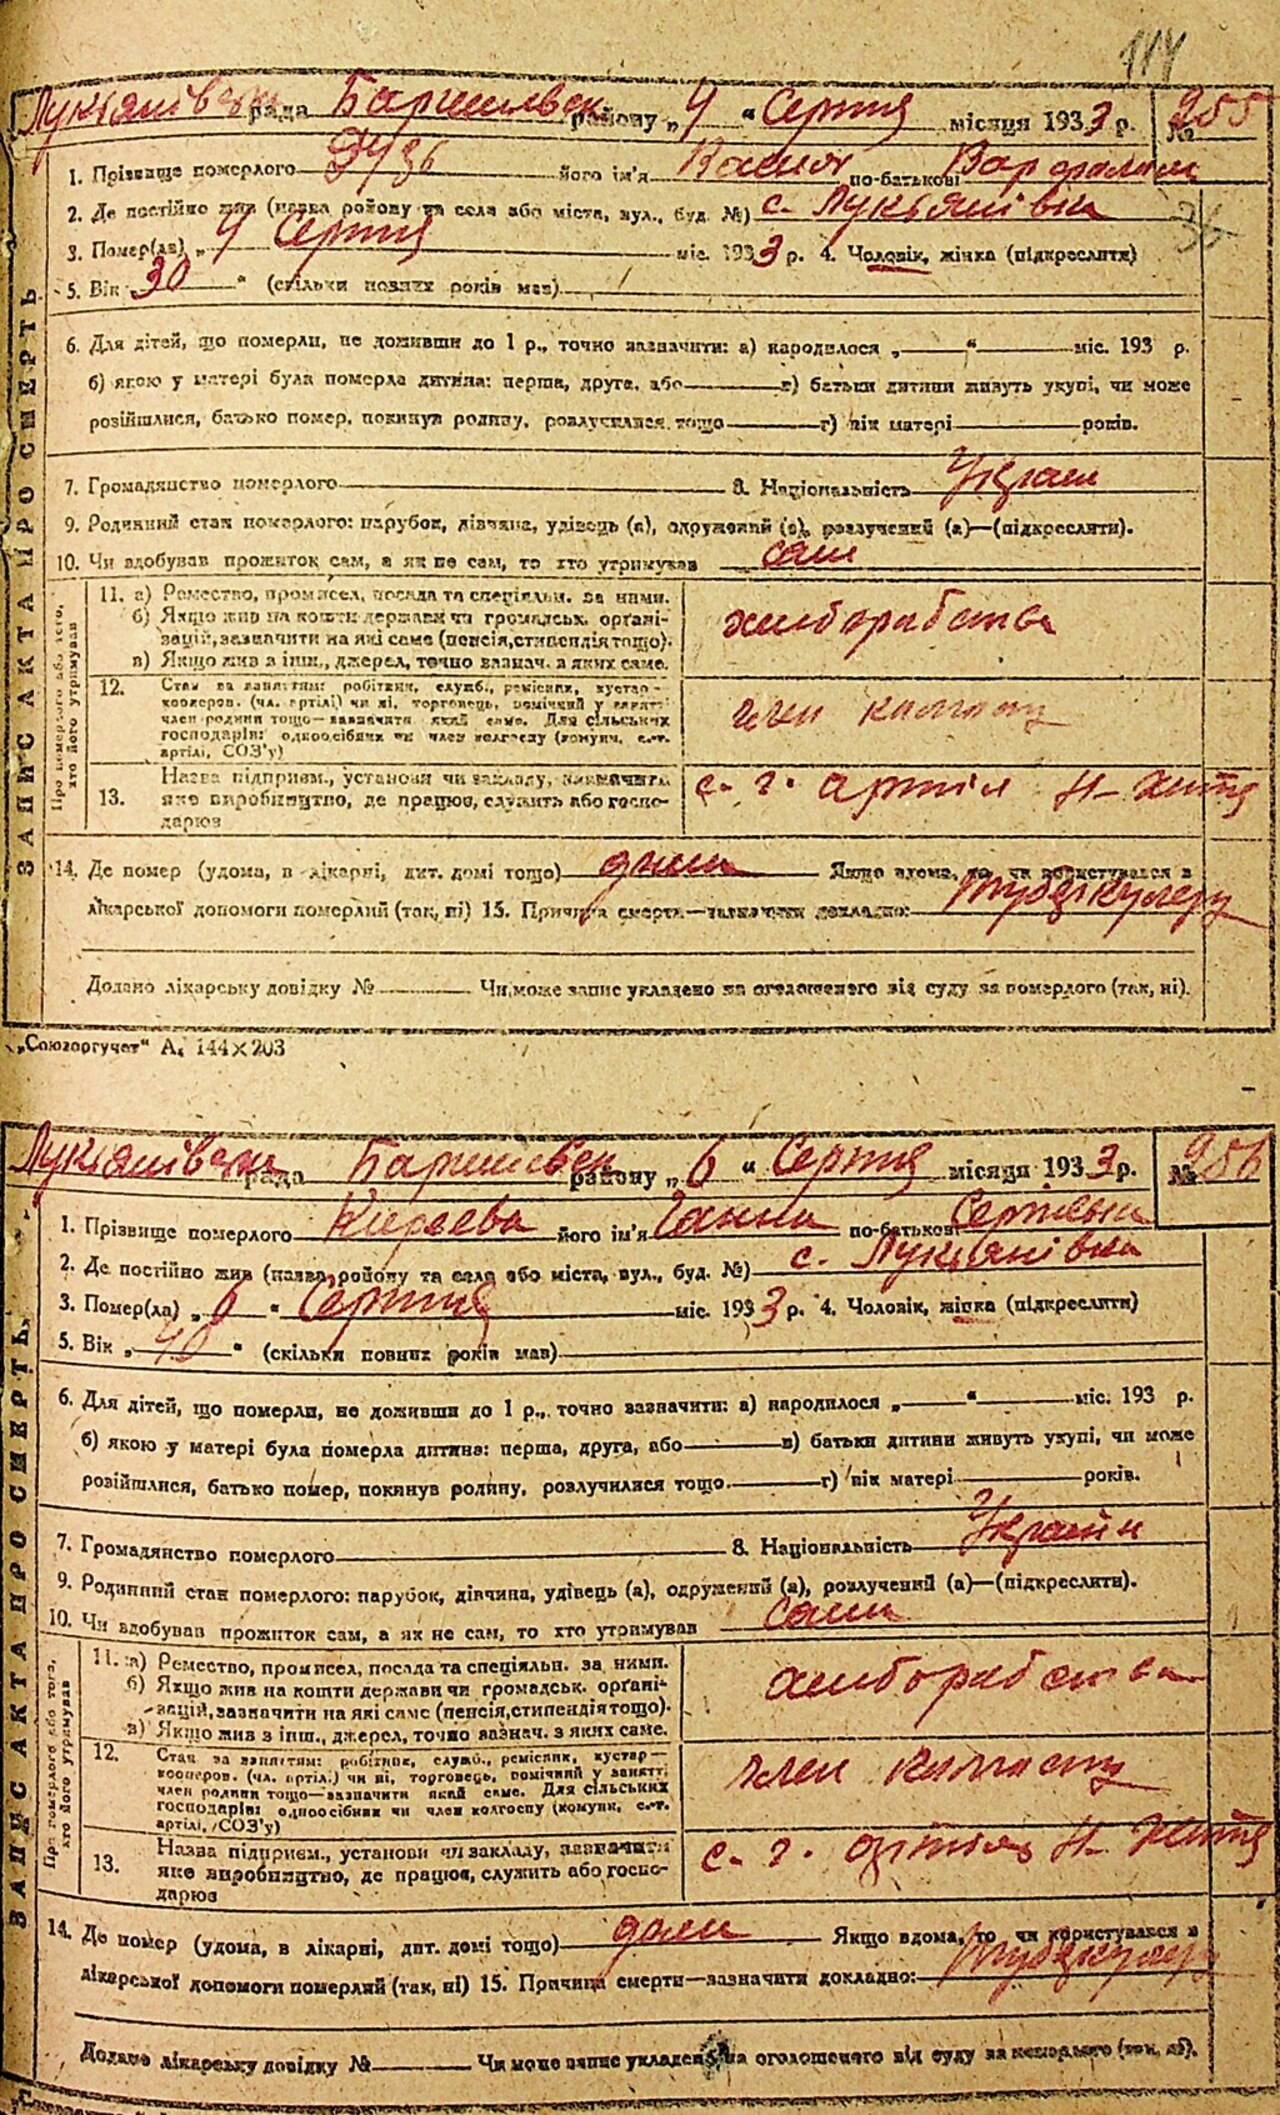 114
Лукьянівськ рада Баришівськ району „ 4 “ Серпня місяця 1933 р. № 255
1. Прізвище померлого його ім'я по-батькові
2. Де постійно жив (назва району та села або міста, вул., буд. №) с. Лукьянівка
3. Помер(ла) „ 4 Серпня міс. 1933 р. 4. Чоловік, жінка (підкреслити)
5. Вік 30 “ (скільки повних років мав)
6. Для дітей, що померли, не доживши до 1 р., точно зазначити: а) народилося „ “ міс. 193 р.
б) якою у матері була померла дитина: перша, друга, або в) батьки дитини живуть укупі, чи може
розійшлися, батько помер, покинув родину, розлучилися тощо г) вік матері років.
7. Громадянство померлого 8. Національність Україн
9. Родинний стан померлого: парубок, дівчина, удівець (а), одружений (а), розлучений (а)—(підкреслити).
10. Чи здобував прожиток сам, а як не сам, то хто утримував сам
Про померлого або того, хто його утримував
11. а) Ремество, промисел, посада та спеціяльн. за ними.
б) Якщо жив на кошти держави чи громадськ. орґані-
зацій, зазначити на які саме (пенсія, стипендія тощо).
в) Якщо жив з інш., джерел, точно зазнач. з яких саме.
хліборобство
12. Стан за заняттям: робітник, служб., ремісник, кустар—
кооперов. (чл. артілі) чи ні, торговець, помічний у занятті
член родини тощо—зазначити який саме. Для сільських
господарів: одноосібник чи член колгоспу (комуни, с.-г.
артілі, СОЗ'у)
член колгоспу
13. Назва підприєм., установи чи закладу, зазначити
яке виробництво, де працює, служить або госпо-
дарює
с. г. артіл Н-Життя
14. Де помер (удома, в лікарні, дит. домі тощо) дома Якщо вдома, то чи користувався з
лікарської допомоги померлий (так, ні) 15. Причина смерти—зазначити докладно: туберкульоз
Додано лікарську довідку № Чи може запис укладено на оголошеного від суду за померлого (так, ні).
ЗАПИС АКТА ПРО СМЕРТЬ
„Союзоргучет“ А₅ 144×203
Лукьянівськ рада Баришівськ району „ 6 “ Серпня місяця 1933 р. № 256
1. Прізвище померлого Киреева його ім'я Ганна по-батькові Сергіевна
2. Де постійно жив (назва району та села або міста, вул., буд. №) с. Лукьянівка
3. Помер(ла) „ 6 “ Серпня міс. 1933 р. 4. Чоловік, жінка (підкреслити)
5. Вік „ 40 “ (скільки повних років мав)
6. Для дітей, що померли, не доживши до 1 р., точно зазначити: а) народилося „ “ міс. 193 р.
б) якою у матері була померла дитина: перша, друга, або в) батьки дитини живуть укупі, чи може
розійшлися, батько помер, покинув родину, розлучилися тощо. г) вік матері років.
7. Громадянство померлого 8. Національність Україн
9. Родинний стан померлого: парубок, дівчина, удівець (а), одружений (а), розлучений (а)—(підкреслити).
10. Чи здобував прожиток сам, а як не сам, то хто утримував сама
Про померлого або того, хто його утримував
11. а) Ремество, промисел, посада та спеціяльн. за ними.
б) Якщо жив на кошти держави чи громадськ. орґані-
зацій, зазначити на які саме (пенсія, стипендія тощо).
в) Якщо жив з інш., джерел, точно зазнач. з яких саме.
хліборобство
12. Стан за заняттям: робітник, служб., ремісник, кустар—
кооперов. (чл. артілі) чи ні, торговець, помічний у занятті
член родини тощо—зазначити який саме. Для сільських
господарів: одноосібник чи член колгоспу (комуни, с.-г.
артілі, СОЗ'у)
член колгоспу
13. Назва підприєм., установи чи закладу, зазначити
яке виробництво, де працює, служить або госпо-
дарює
с. г. артіль Н-Життя
14. Де помер (удома, в лікарні, дит. домі тощо) дома Якщо вдома, то чи користувався з
лікарської допомоги померлий (так, ні) 15. Причина смерти—зазначити докладно: туберкульоз
Додано лікарську довідку № Чи може запис укладено на оголошеного від суду за померлого (так, ні).
ЗАПИС АКТА ПРО СМЕРТЬ